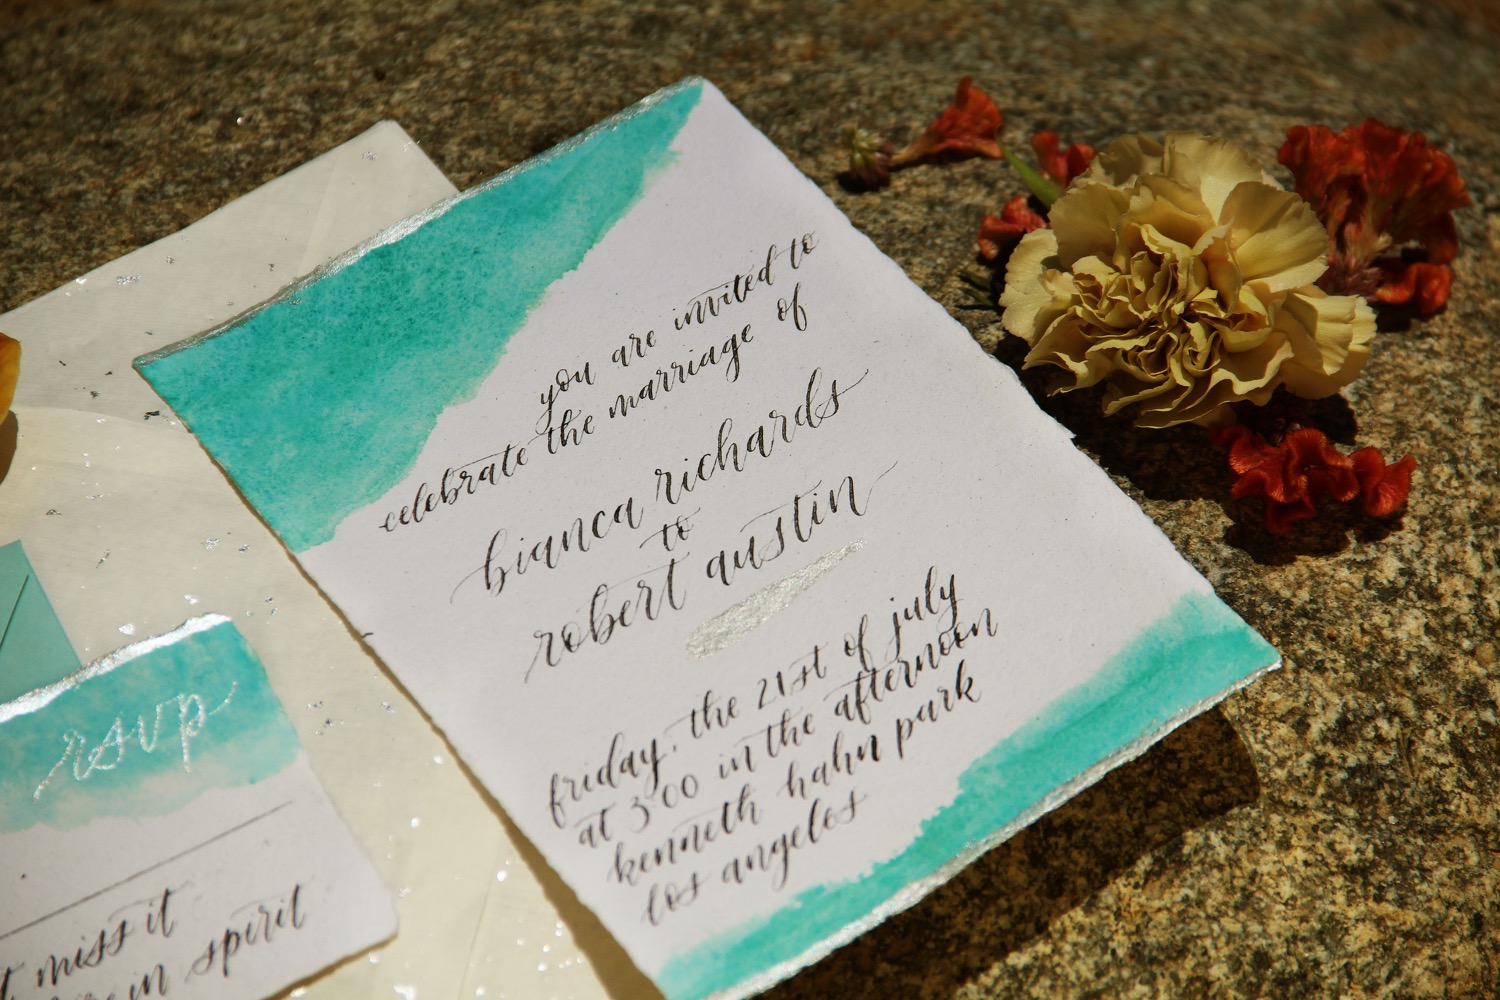 you are invited to
celebrate the marriage of
bianca richards
to
robert austin
friday, the 21st of july
at 3:00 in the afternoon
kenneth hahn park
los angelos
rsvp
miss it
in spirit